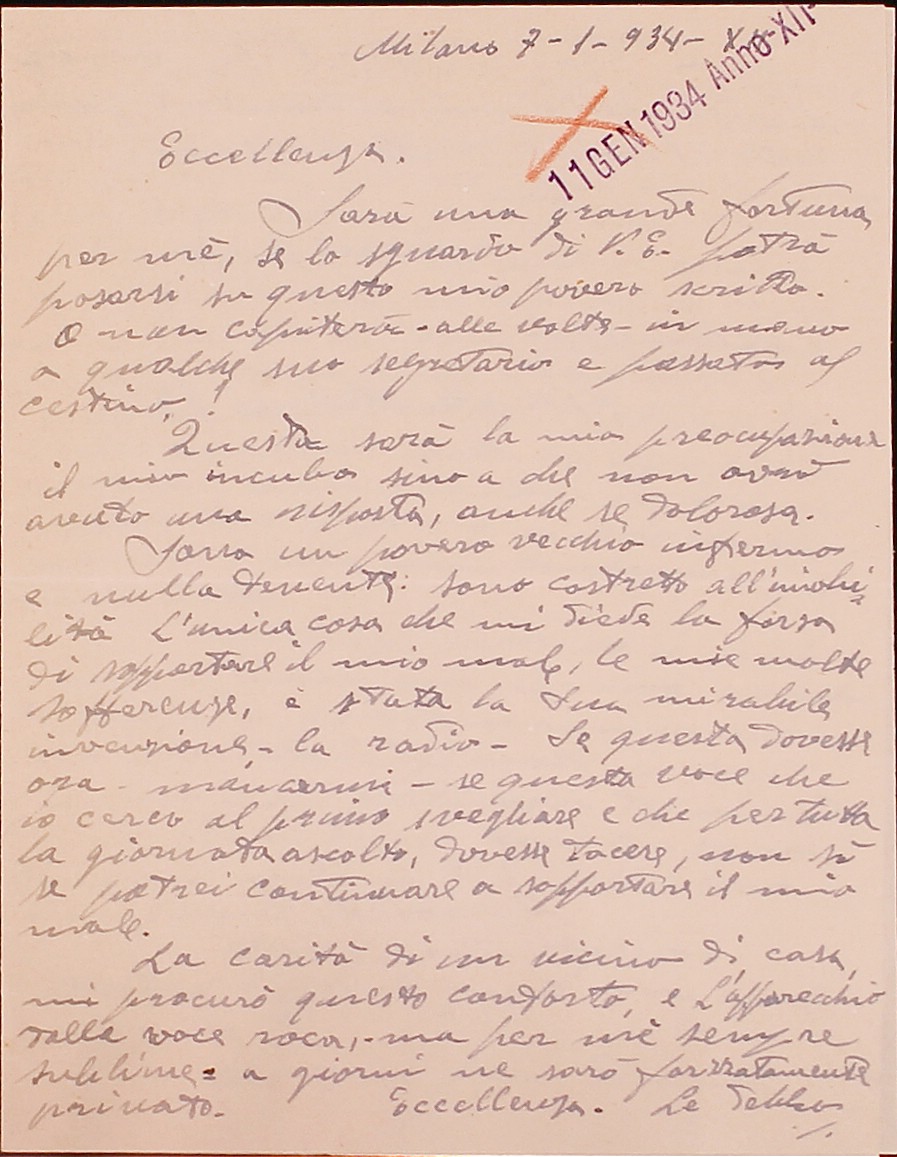 Milano 7-1-934-XII
11 GEN 1934 Anno-XII-
Eccellenza.
Sarà una grande fortuna
per mè, se lo sguardo di V.E. potrà
posarsi su questo mio povero scritto.
O non capiterà - alle volte - in mano
a qualche suo segretario e passato al
cestino!
Questa sarà la mia preocupazione
il mio incubo sino a che non avrò
avuto una risposta, anche se dolorosa.
Sono un povero vecchio infermo
e nulla tenente: sono costretto all'imobi=
lità L'unica cosa che mi diede la forza
di sopportare il mio male, le mie molte
sofferenze, è stata la Sua mirabile
invenzione - la radio - Se questa dovesse
ora - mancarmi - se questa voce che
io cerco al primo svegliare e che per tutta
la giornata ascolto, dovesse tacere, non sò
se potrei continuare a sopportare il mio
male.
La carità di un vicino di casa,
mi procurò questo conforto, e L'apparecchio
dalla voce roca, - ma per mè sempre
sublime = a giorni ne sarò forzatamente
privato. Eccellenza. Le debbo
./.